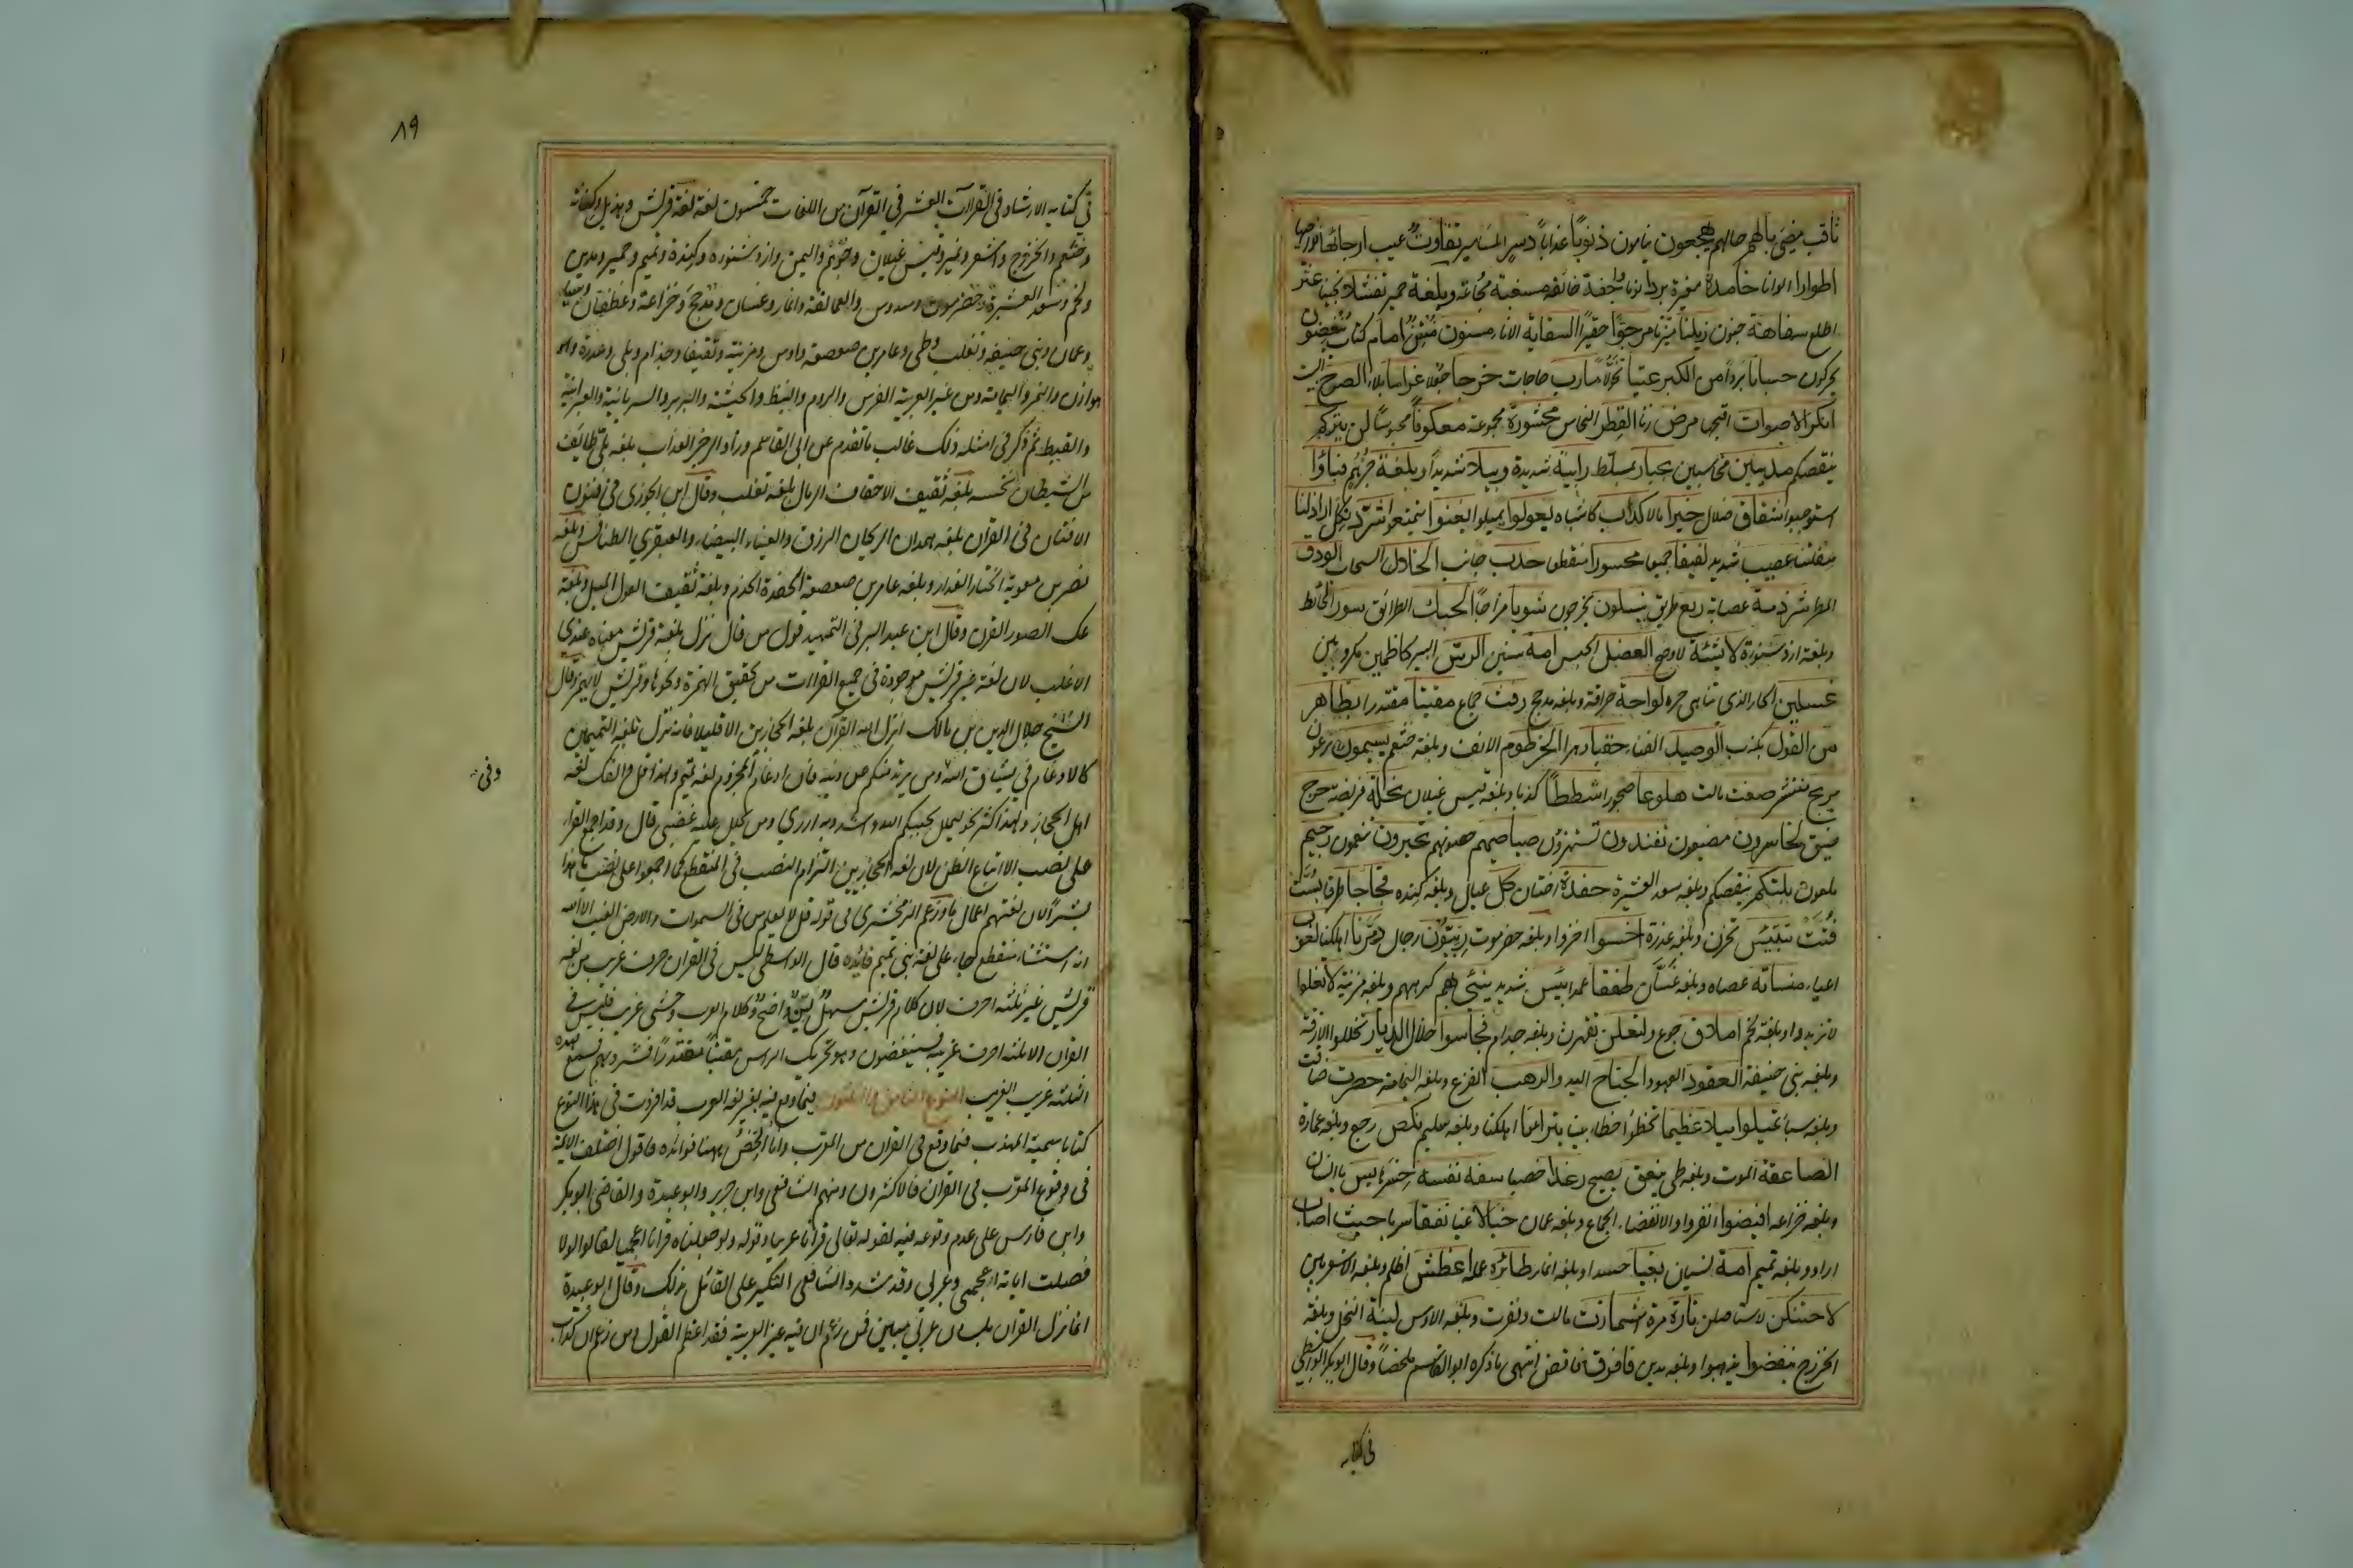 ثاقب مضئ بالهم حالهم يهجعون ينامون ذنوبا عذابا دسر المسامير تفاوت عيب ارجائها نواحيها
اطوارا الوانا خامدة مغبرة بردا نوما واجفة خائفة مسغبة مجاعة وبلغة حمير تفشلا تجبنا عثر
اطلع سفاهة جنون زيلنا ميزنا مرجوا حقيرا السقاية الاناء مسنون منتن امام كتاب ينغضون
يحركون حسبانا بردا من الكبر عتيا نحولا مارب حاجات خرجا جعلا غراما بلاء الصرح البيت
انكر الاصوات اقبحها مرض زنا القطر النحاس محشورة مجموعة معكوفا محبوسا لن يتركم
ينقصكم مدينين محاسبين بجبار بمسلط رابية شديدة وبيلا شديدا وبلغة جرهم فباؤا
استوجبوا شقاق ضلال خيرا مالا كداب كاشباه تعولوا تميلوا يغنوا يتمتعوا شرد نكل اراذلنا
سفلتنا عصيب شديد لفيفا جميعا محسورا منقطعا حدب جانب الخلال السحاب الودق
المطر شرذمة عصابة ريع طريق ينسلون يخرجون شوبا مزاجا الحبك الطرائق سور الحائط
وبلغة ازد شنوءة لاشية لاوضح العضل الحبس امة سنين الرس البير كاظمين مكروبين
غسلين الحار الذى تناهى حره لواحة حراقة وبلغة مذحج رفث جماع مقيتا مقتدرا بظاهر
من القول بكذب الوصيد الفناء حقبا دهرا الخرطوم الانف وبلغة خثعم تسيمون ترعون
مريج منتشر صغت مالت هلوعا ضجورا شططا كذبا وبلغة قيس غيلان نحلة فريضة حرج
ضيق لخاسرون مضيعون تفندون تستهزؤن صياصيهم حصونهم تحبرون تنعمون رجيم
ملعون يلتكم ينقصكم وبلغة سعد العشيرة حفدة اختان كل عيال وبلغة كندة فجاجا طرقا بست
فتت تبتئس تحزن وبلغة عذرة اخسوا اخزوا وبلغة حضرموت ربيون رجال دمرنا اهلكنا لغوب
اعياء منساته عصاه وبلغة غسان طفقا عمدا بئيس شديد سيئ بهم كرههم وبلغة مزينة لا تغلوا
لا تزيدوا وبلغة لخم املاق جوع ولتعلن تقهرن وبلغة جذام فجاسوا خلال الديار تخللوا الازقة
وبلغة بنى حنيفة العقود العهود الجناح اليد والرهب الفزع وبلغة اليمامة حصرت ضاقت
وبلغة سبا تميلوا ميلا عظيما تخطؤا خطا بينا تبرنا اهلكنا وبلغة سليم نكص رجع وبلغة عمارة
الصاعقة الموت وبلغة طى ينعق يصيح رغدا خصبا سفه نفسه خسرها يس يا انسان
وبلغة خزاعة افيضوا انفروا والافضاء الجماع وبلغة عمان خبالا غيا نفقا سربا حيث اصاب
اراد وبلغة تميم امة نسيان بغيا حسدا وبلغة انمار طائره عمله اغطش اظلم وبلغة الاشعريين
لاحتنكن لاستاصلن تارة مرة اشمازت مالت ونفرت وبلغة الاوس لينة النخل وبلغة
الخزرج ينفضوا يذهبوا وبلغة مدين فافرق فاقض انتهى ما ذكره ابو القاسم ملخصا وقال ابو بكر الواسطى
فى كتابه
٨٩
فى كتابه الارشاد فى القراآت العشر فى القرآن من اللغات خمسون لغة لغة قريش وهذيل وكنانة
وخثعم والخزرج واشعر ونمير وقيس غيلان وجرهم واليمن وازد شنوءة وكندة وتميم وحمير ومدين
ولخم وسعد العشيرة وحضرموت وسدوس والعمالقة وانمار وغسان ومذحج وخزاعة وغطفان وسبا
وعمان وبنى حنيفة وتغلب وطى وعامر بن صعصعة واوس ومزينة وثقيف وجذام وبلى وعذرة وهو
هوازن والنمر واليمامة ومن غير العربية الفرس والروم والنبط والحبشة والبربر والسريانية والعبرانية
والقبط ثم ذكر فى امثلة ذلك غالب ما تقدم عن ابى القاسم وزاد الرجز العذاب بلغة بلى طائف
من الشيطان نخسه بلغة ثقيف الاحقاف الرمال بلغة تغلب وقال ابن الجوزى فى فنون
الافنان فى القرآن بلغة همدان الريحان الرزق والعيناء البيضاء والعبقرى الطنافس وبلغة
نصر بن معوية الختار الغدار وبلغة عامر بن صعصعة الحفدة الخدم وبلغة ثقيف العول الميل وبلغة
عك الصور القرن وقال ابن عبد البر فى التمهيد قول من قال نزل بلغة قريش معناه عندى
الاغلب لان لغة غير قريش موجودة فى جميع القراآت من تحقيق الهمزة ونحوها وقريش لا تهمز وقال
الشيخ جلال الدين بن مالك انزل الله القرآن بلغة الحجازيين الا قليلا فانه نزل بلغة التميميين
كالادغام فى يشاق الله ومن يرتد منكم عن دينه فان ادغام المجزوم لغة تميم ولهذا قل والفك لغة
وفى
اهل الحجاز ولهذا كثر نحو ليملل يحببكم الله واشدد به ازرى ومن يحلل عليه غضبى قال وقد اجمع القراء
على نصب الا اتباع الظن لان لغة الحجازيين التزام النصب فى المنقطع كما اجمعوا على نصب ما هذا
بشرا لان لغتهم اعمال ما وزعم الزمخشرى فى قوله قل لا يعلم من فى السموات والارض الغيب الا الله
انه استثناء منقطع جاء على لغة بنى تميم فائدة قال الواسطى ليس فى القران حرف غريب من لغة
قريش غير ثلثة احرف لان كلام قريش سهل لين واضح وكلام العرب وحشى غريب فليس فى
القران الا ثلثة احرف غريبة فسينغضون وهو تحريك الراس مقيتا مقتدرا فشرد بهم سمع هذه
الثلثة غريب الغريب النوع الثامن والثلثون فيما وقع فيه بغير لغة العرب قد افردت فى هذا النوع
كتابا سميته المهذب فيما وقع فى القران من المعرب وانا الخص ههنا فوائده فاقول اختلف الائمة
فى وقوع المعرب فى القران فالاكثرون ومنهم الشافعى وابن جرير وابو عبيدة والقاضى ابو بكر
وابن فارس على عدم وقوعه فيه لقوله تعالى قرانا عربيا وقوله ولو جعلناه قرانا اعجميا لقالوا لولا
فصلت اياته ااعجمى وعربى وقد شدد الشافعى النكير على القائل بذلك وقال ابو عبيدة
انما نزل القران بلسان عربى مبين فمن زعم ان فيه غير العربية فقد اعظم القول ومن زعم ان كذابا